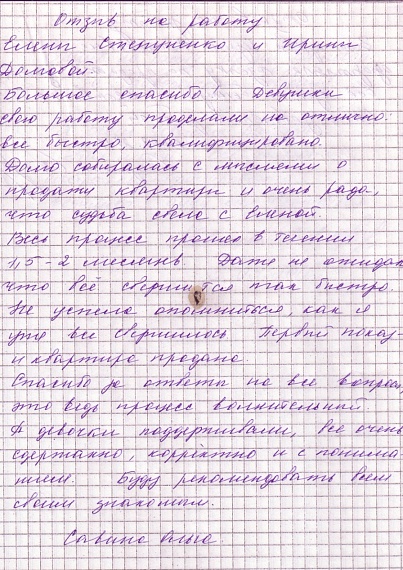 Отзыв на работу
Елены Степуненко и Ирины
Домовой.
Большое спасибо! Девушки
свою работу проделали на отлично.
все быстро, квалифицировано.
Долго собиралась с мыслями о
продажи квартиры и очень рада,
что судьба свела с Еленой.
Весь процесс прошел в течении
1,5-2 месяцев. Даже не ожидала
что всё свершится так быстро.
Не успела опомниться, как я
уже все свершилось Первый показ-
и квартира продана.
Спасибо за ответы на все вопросы,
это ведь процесс волнительный.
А девочки поддерживали, все очень
сдержанно, корректно и с понима-
нием. Буду рекомендовать всем
своим знакомым.
Савина Ольга